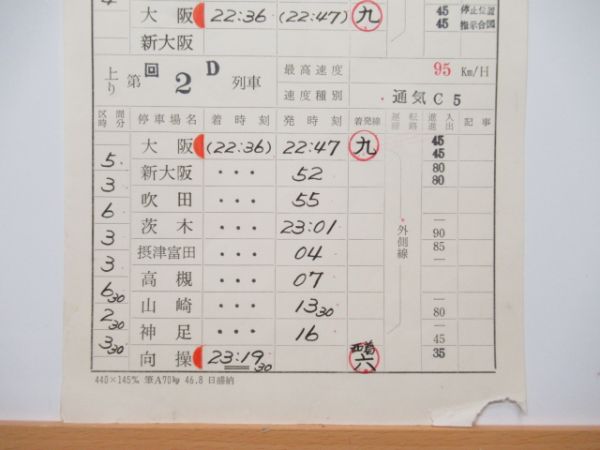 4
大阪 22:36 (22:47) 九 45 停止位置
新大阪 45 指示合図
上り 第 回 2 D 列車 最高速度 95 Km/H
速度種別 通気C5
区間 時分 停車場名 着時刻 発時刻 着発線 運転線路 進入進出 記事
大阪 (22:36) 22:47 九 45 45
5
新大阪 ・・・ 52 80 80
3
吹田 ・・・ 55
6
茨木 ・・・ 23:01 — 90
3
外側線
摂津富田 ・・・ 04 85 —
3
高槻 ・・・ 07 —
6 30
山崎 ・・・ 13 30 — 80
2 30
神足 ・・・ 16 — 45
3 30
向操 23:19 30 六 35
440×145% 筆A70kg 46.8 日盛納